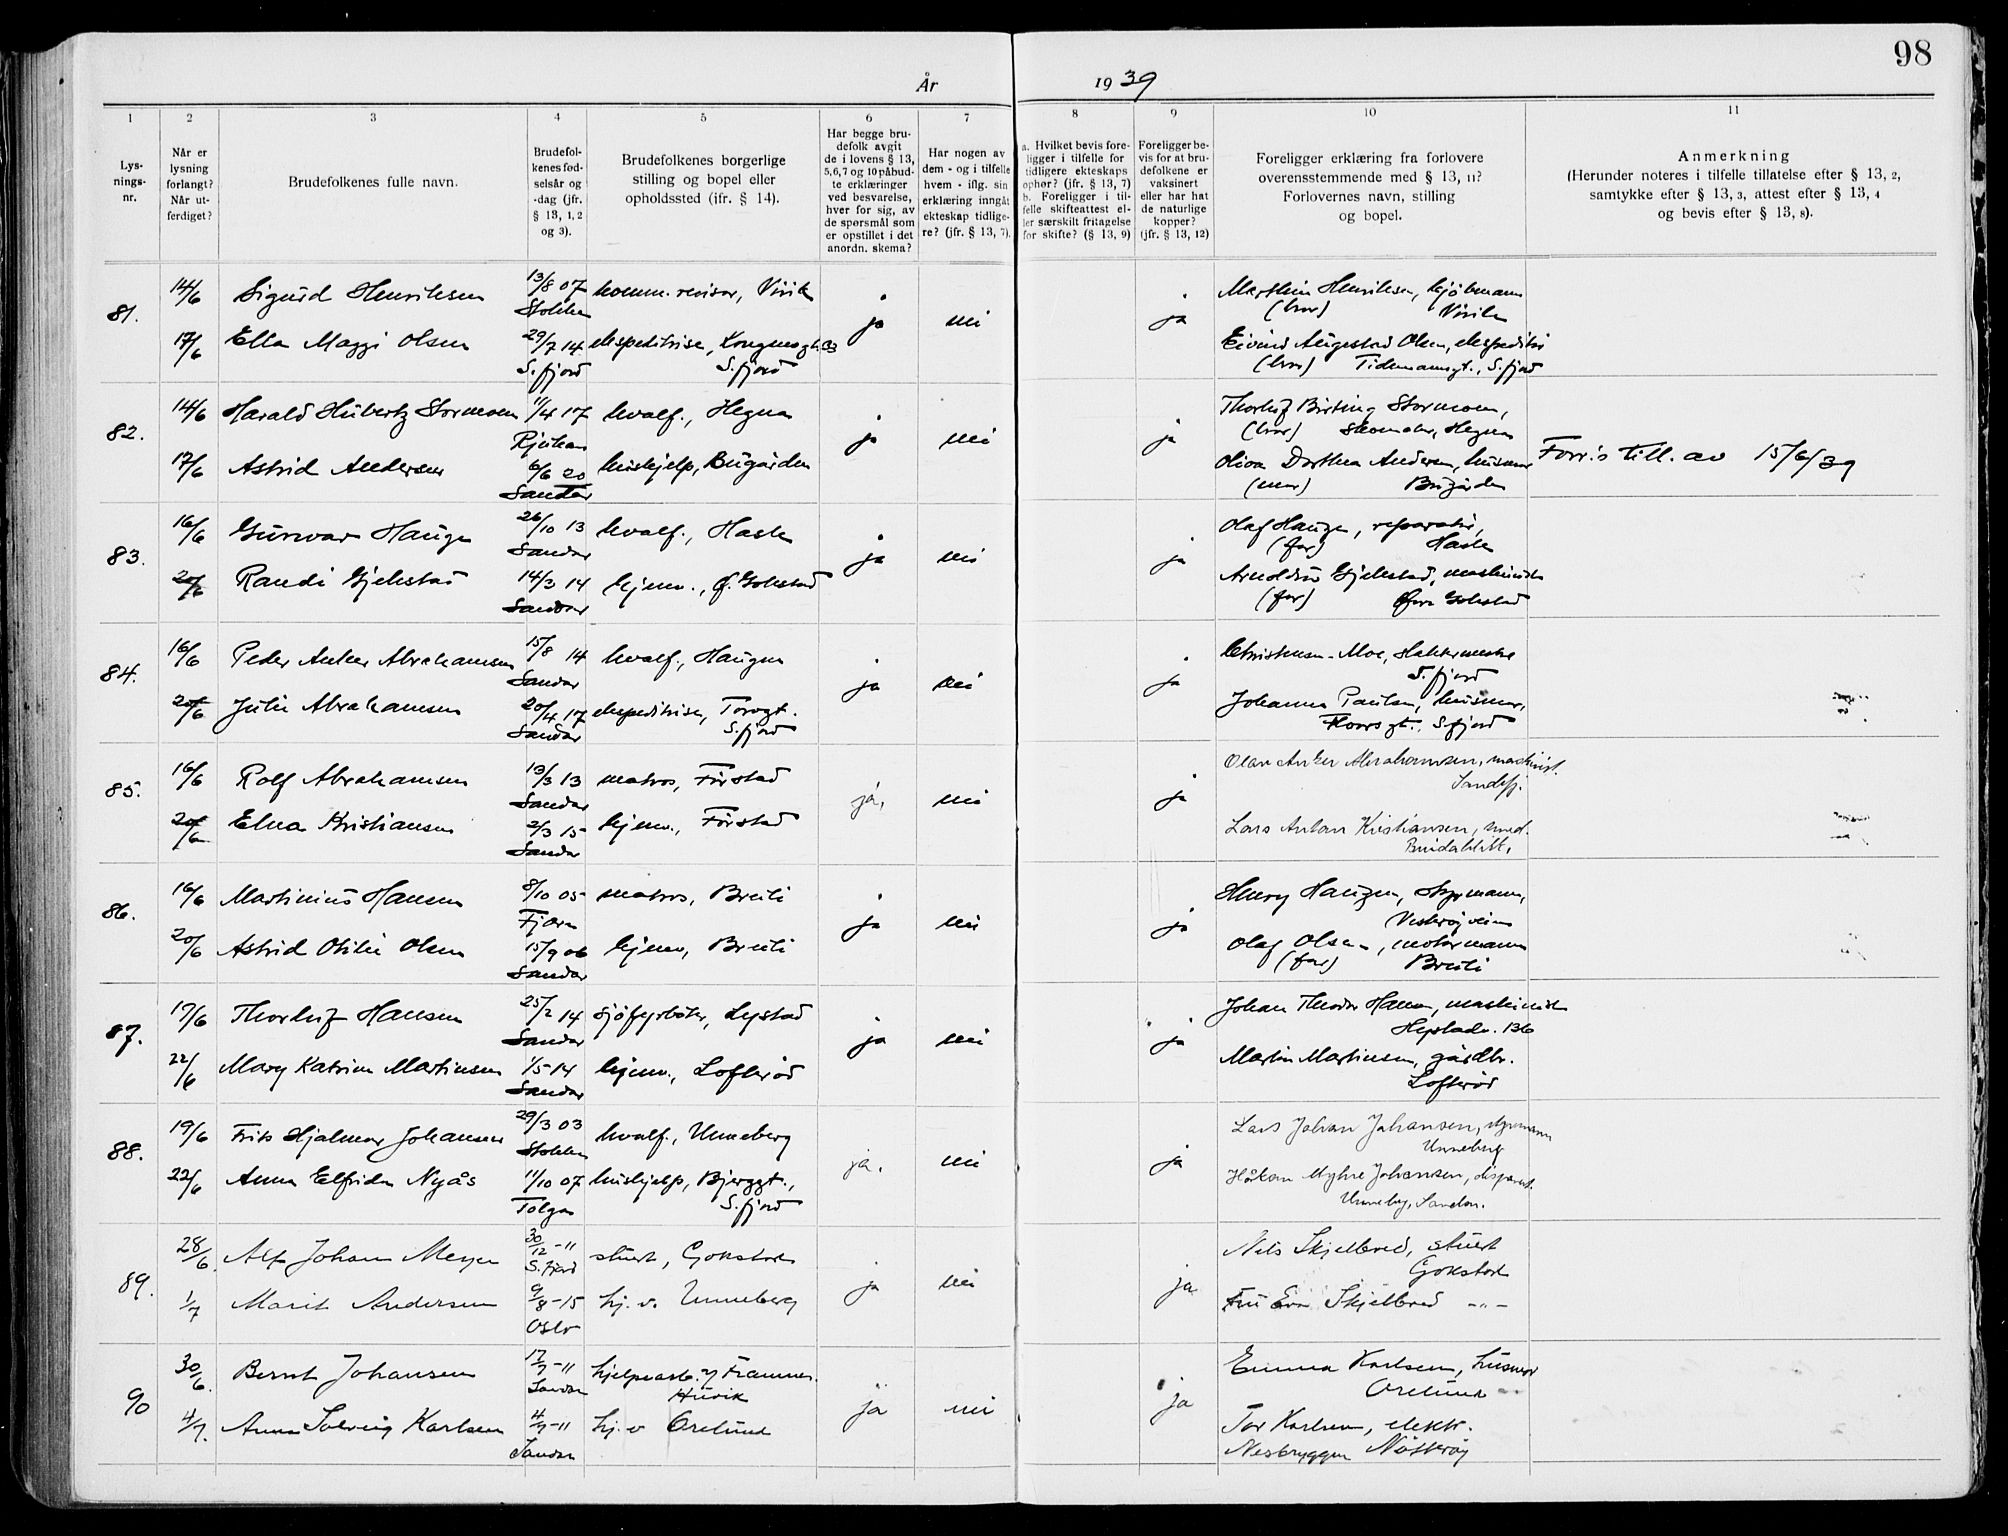 98
År 1939
1 2 3 4 5 6 7 8 9 10 11
Lysningsnr.
Når er lysning forlangt? Når utferdiget?
Brudefolkenes fulle navn.
Brudefolkenes fødselsår og -dag (jfr. § 13, 1, 2 og 3).
Brudefolkenes borgerlige stilling og bopel eller opholdssted (ifr. § 14).
Har begge brudefolk avgit de i lovens § 13, 5,6,7 og 10 påbudte erklæringer ved besvarelse, hver for sig, av de spørsmål som er opstillet i det anordn. skema?
Har nogen av dem - og i tilfelle hvem - iflg. sin erklæring inngåt ekteskap tidligere? (jfr. § 13, 7).
a. Hvilket bevis foreligger i tilfelle for tidligere ekteskaps ophør? (jfr. § 13, 7)
b. Foreligger i tilfelle skifteattest eller særskilt fritagelse for skifte? (§ 13, 9)
Foreligger bevis for at brudefolkene er vaksinert eller har hat de naturlige kopper? (jfr. § 13, 12)
Foreligger erklæring fra forlovere overensstemmende med § 13, 11? Forlovernes navn, stilling og bopel.
Anmerkning
(Herunder noteres i tilfelle tillatelse efter § 13, 2, samtykke efter § 13, 3, attest efter § 13, 4 og bevis efter § 13, 8).
81. 14/6 Sigurd Henriksen 13/8 07 Stokke komm. revisor, Virik ja nei ja Marthin Henriksen, kjøbmann
(bror) Virik
17/6 Ella Maggi Olsen 29/7 14 S.fjord ekspeditrise, Kongensgt. 33 S.fjord Eivind Augestad Olsen, ekspeditør
(bror) Tidemannsgt., S.fjord
82. 14/6 Harald Hubertz Stormoen 1/4 17 Rjukan hvalf., Hegna ja nei ja Thorleif Stormoen,
(bror) Hegna
17/6 Astrid Andersen 6/6 20 Sandar hushjelp, Bugården Oliva Dorthea Andersen, husmor
(mor) Bugården
Forr.s till. av 15/6/39
83. 16/6 Gunvar Haugen 26/10 13 Sandar hvalf., Hasle ja nei ja Olaf Haugen, reparatør,
(far) Hasle
20/6 Randi Gjekstad 14/3 14 Sandar hjemv., Ø. Gokstad Gjekstad, maskinist
(far) Øvre Gokstad
84. 16/6 Peder Anker Abrahamsen 15/8 14 Sandar hvalf., Haugen ja nei ja Christensen-Moe,
S.fjord
20/6 Julie Abrahamsen 20/4 17 Sandar ekspeditrise, Torvgt. S.fjord Johanna Paulsen, husmor,
S.fjord
85. 16/6 Rolf Abrahamsen 13/3 13 Sandar matros, Furstad ja, nei ja Olav Anker Abrahamsen, maskinist.
Sandefj.
20/6 Elna Kristiansen 2/3 15 Sandar hjemv., Furstad Lars Anton Kristiansen, smed.
86. 16/6 Martinius Hansen 8/10 05 Fjære matros, Breili ja nei ja Henry Haugen, styrmann,
Vesterøyveien
20/6 Astrid Otilie Olsen 15/9 06 Sandar hjemv, Breili Olaf Olsen, motormann
(far) Breili
87. 19/6 Thorleif Hansen 25/2 14 Sandar sjøfyrbøter, Lystad ja nei ja Johan Theodor Hansen, maskinist
Hystadv. 136
22/6 Mary Katrine Martinsen 1/5 14 Sandar hjemv., Lofterød Martin Martinsen, gårdbr.
Lofterød
88. 19/6 Frits Hjalmar Johansen 29/3 03 Stokke hvalf., Unneberg ja. nei ja Lars Johan Johansen, styrmann
Unneberg
22/6 Anna Elfrida Nyås 11/10 07 Tolga hushjelp, Bjerggt., S.fjord Håkon Myhre Johansen, disponent.
Unneberg, Sandar.
89. 28/6 Alf Johan Meyer 30/12-11 S.fjord stuert, Gokstad ja nei ja Nils Skjelbred, stuert
Gokstad
1/7 Marit Andersen 9/8-15 Oslo hj.v. Unneberg Fru Eva Skjelbred -"-
90 30/6 Bernt Johansen 17/7-11 Sandar hjelpearb. v/ Framnes. Huvik ja nei ja Emma Karlsen, husmor
Orelund
4/7. Anna Solveig Karlsen 4/7-11 Sandar hj.v Orelund Tor Karlsen, elektr.
Nesbryggen Nøtterøy